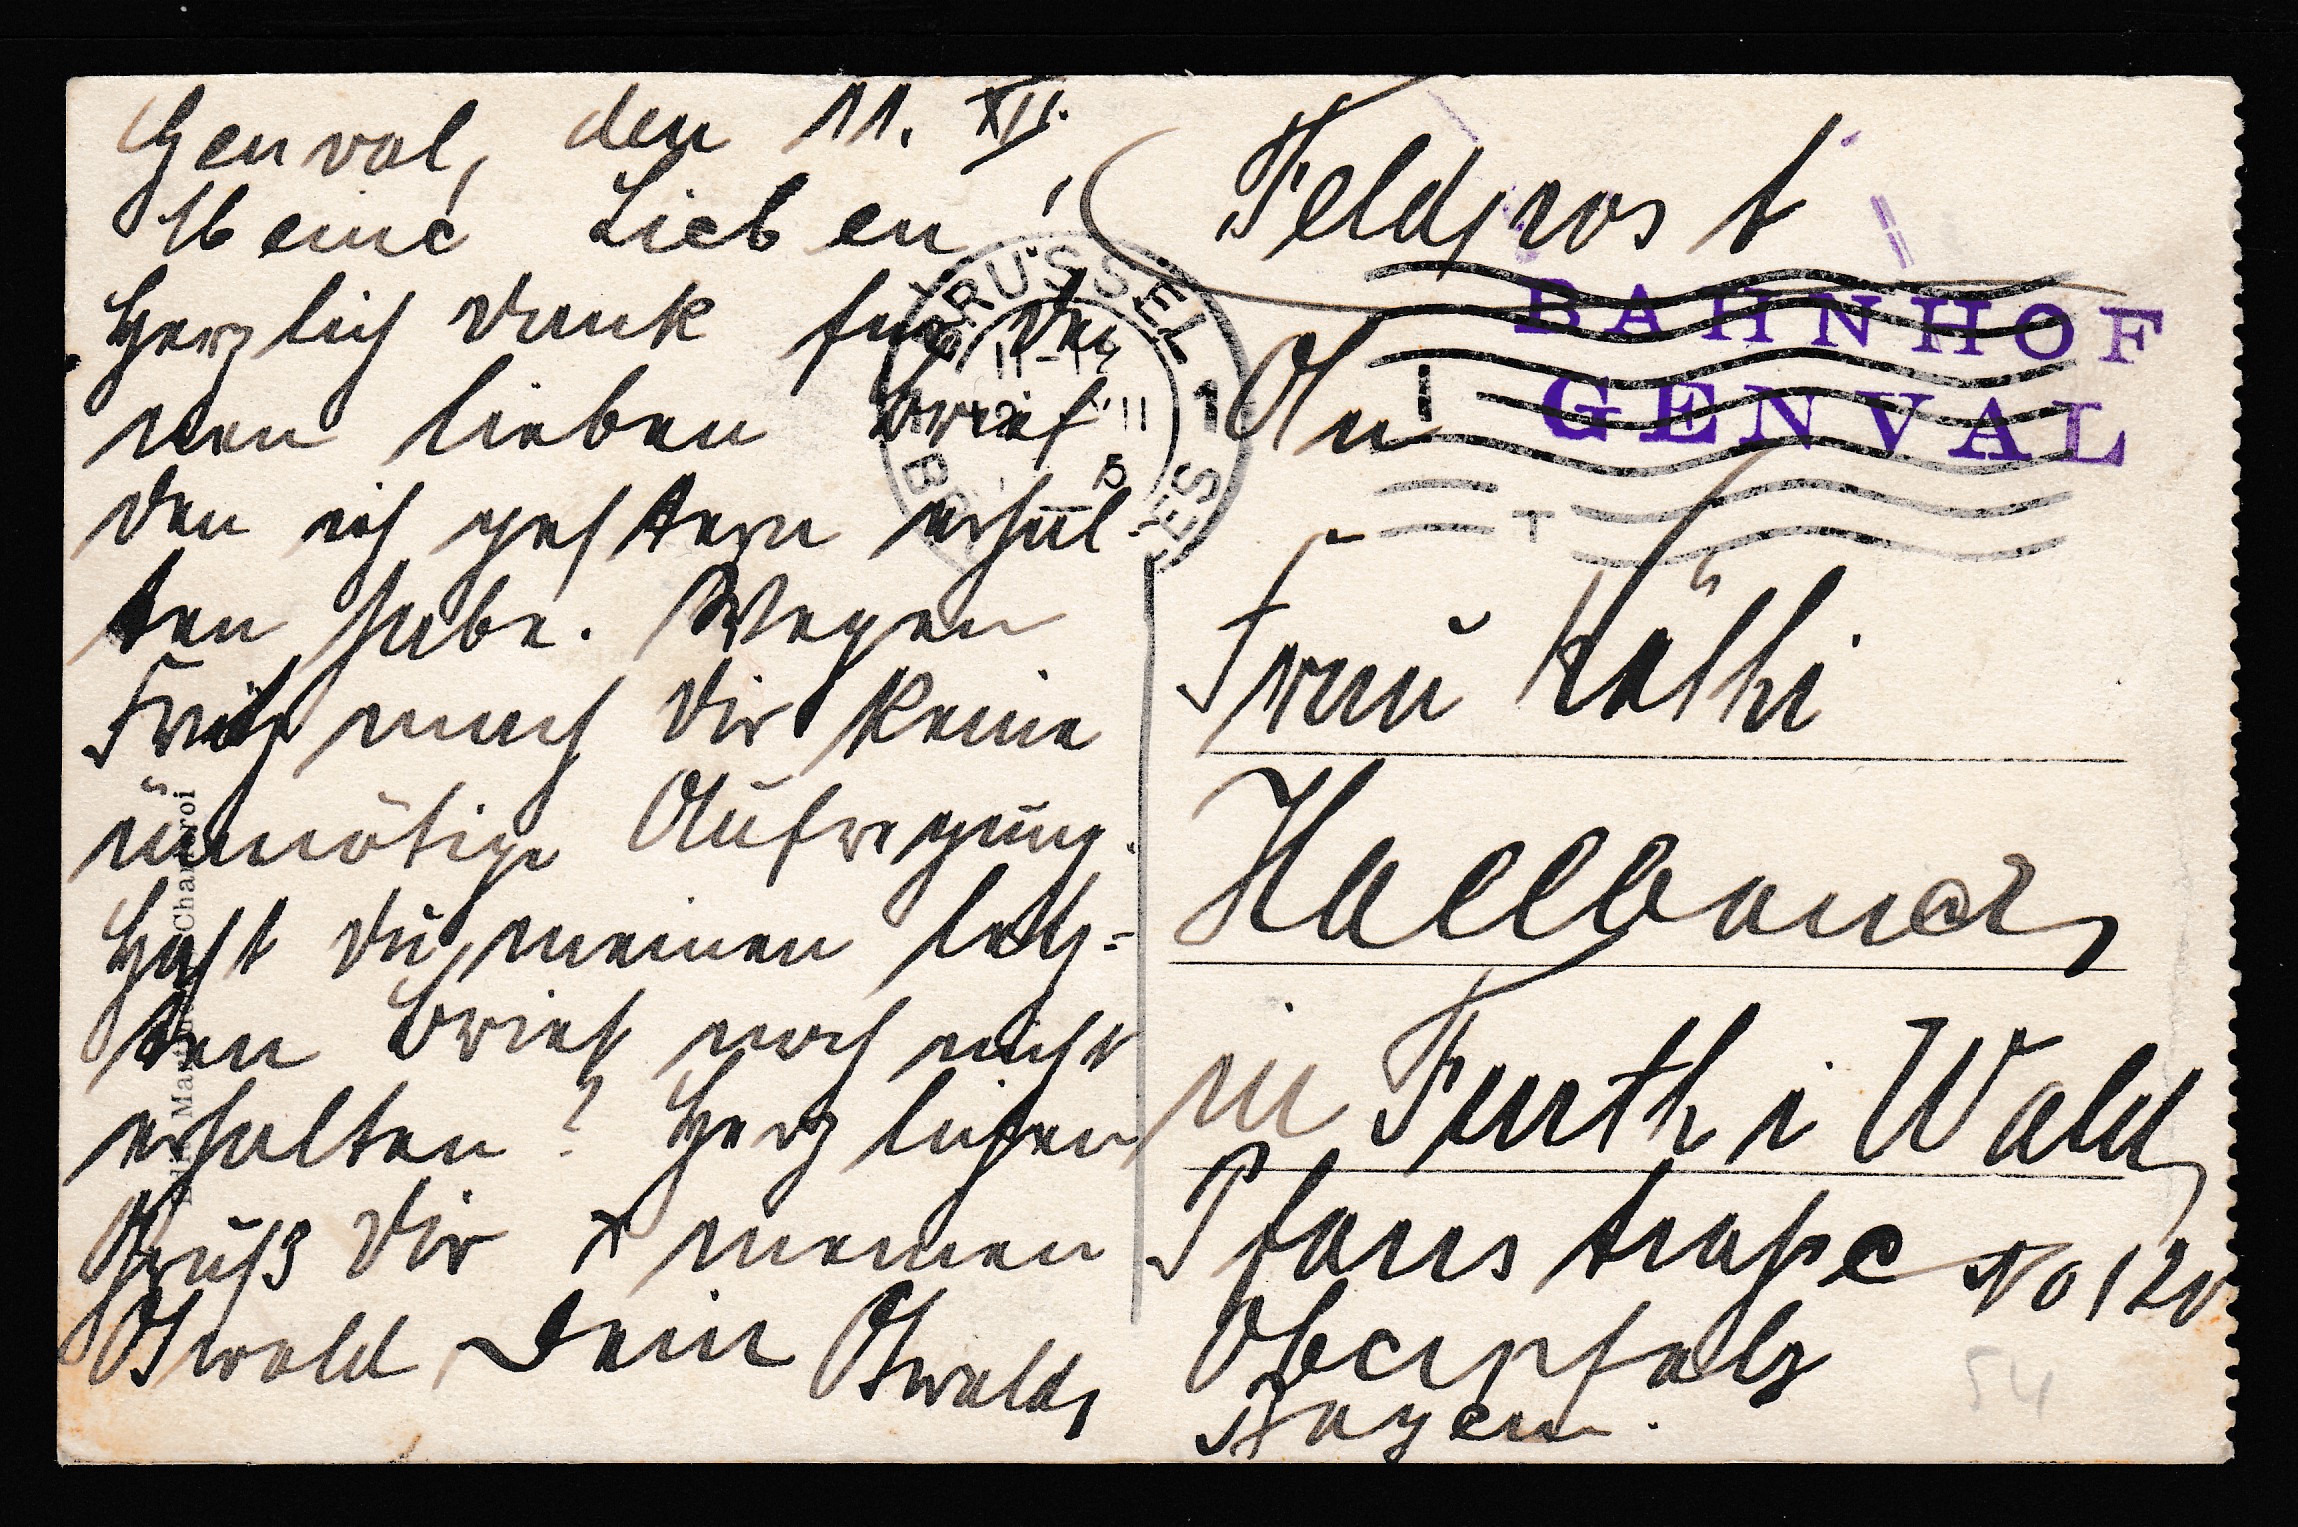 Genval, den 11. XII.
Meine Lieben!
Herzlich Dank für Dei
nen lieben Brief
den ich gestern erhal-
ten habe. Wegen
Fritz mach Dir keine
unnötige Aufregung.
Hast Du meinen letz=
ten Brief noch nicht
erhalten? Herzlichen
Gruß Dir + meinen
Oswald, Dein Oswald,
Feldpost
BAHNHOF
GENVAL
BRÜSSEL 1
11-12
5
An
Frau Käthi
in Furth i Wald
Pfarrstraße No 120
Oberpfalz
Bayern.
54
Charleroi